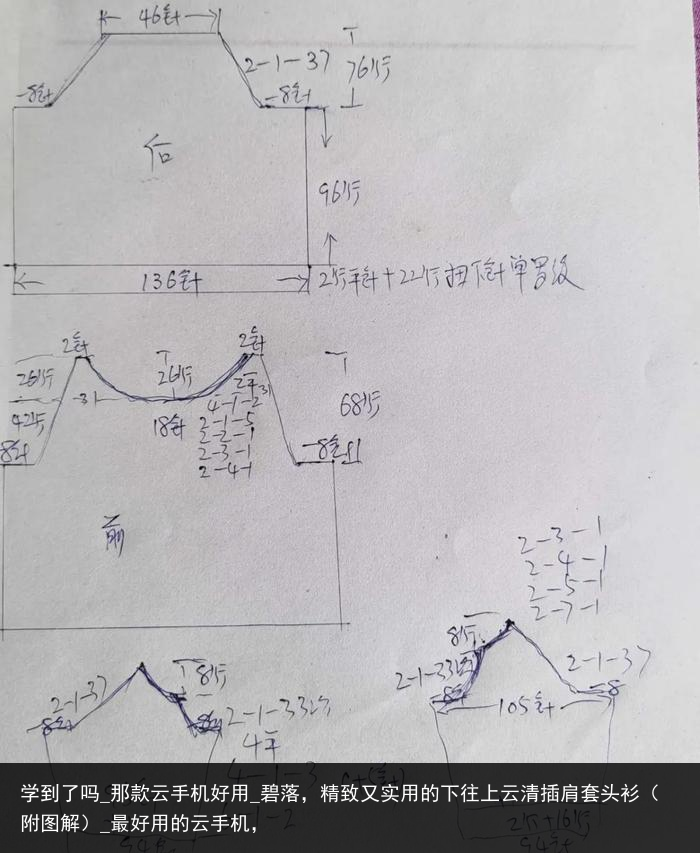 46针
2-1-37
76行
-8针
-8针
后
96行
136针
2行平针+22行扭下针单罗纹
2针
2针
26行
26行
31
31
2平
4-1-2
2-1-5
2-2-1
2-3-1
2-4-1
18针
68行
42行
8针
-8针
前
2-3-1
2-4-1
2-5-1
2-7-1
8行
2-1-37
2-1-33
-8针
-8
105针
8行
2-1-37
-8针
-8针
2-1-33
4平
4-1-3
2行+16行
94针
94针
学到了吗_那款云手机好用_碧落，精致又实用的下往上云清插肩套头衫（
附图解）_最好用的云手机，